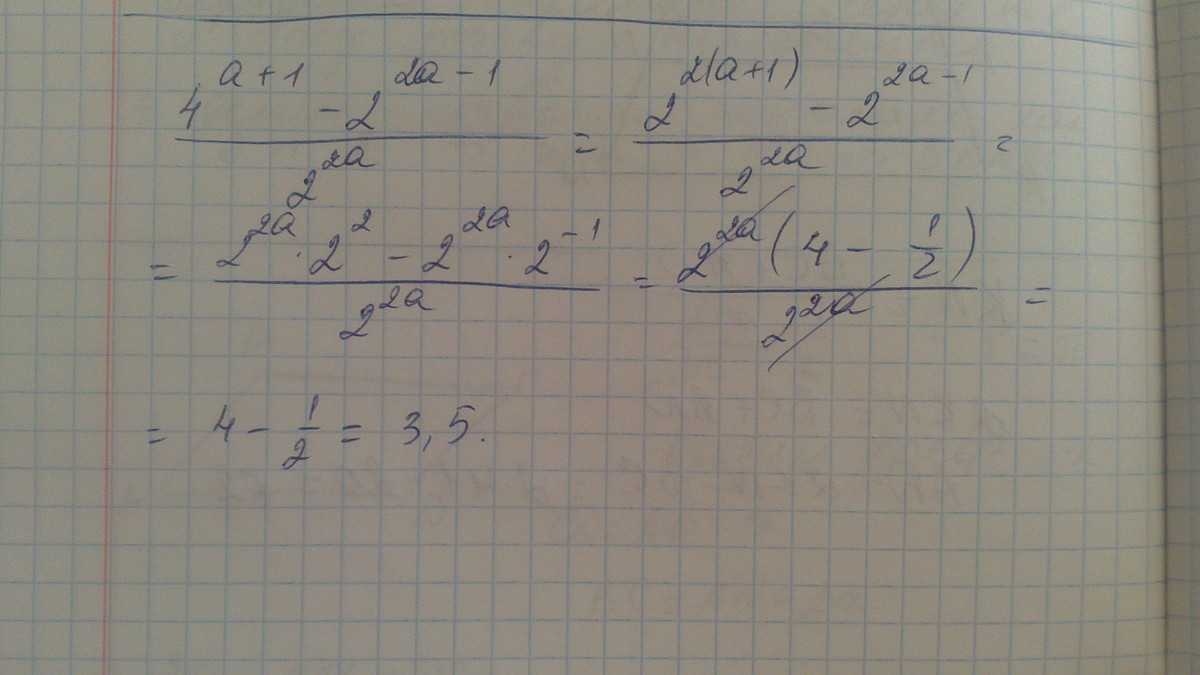 (4^(a+1) - 2^(2a-1)) / 2^(2a) = (2^(2(a+1)) - 2^(2a-1)) / 2^(2a) =
= (2^(2a) · 2^2 - 2^(2a) · 2^(-1)) / 2^(2a) = 2^(2a) (4 - 1/2) / 2^(2a) =
= 4 - 1/2 = 3,5.